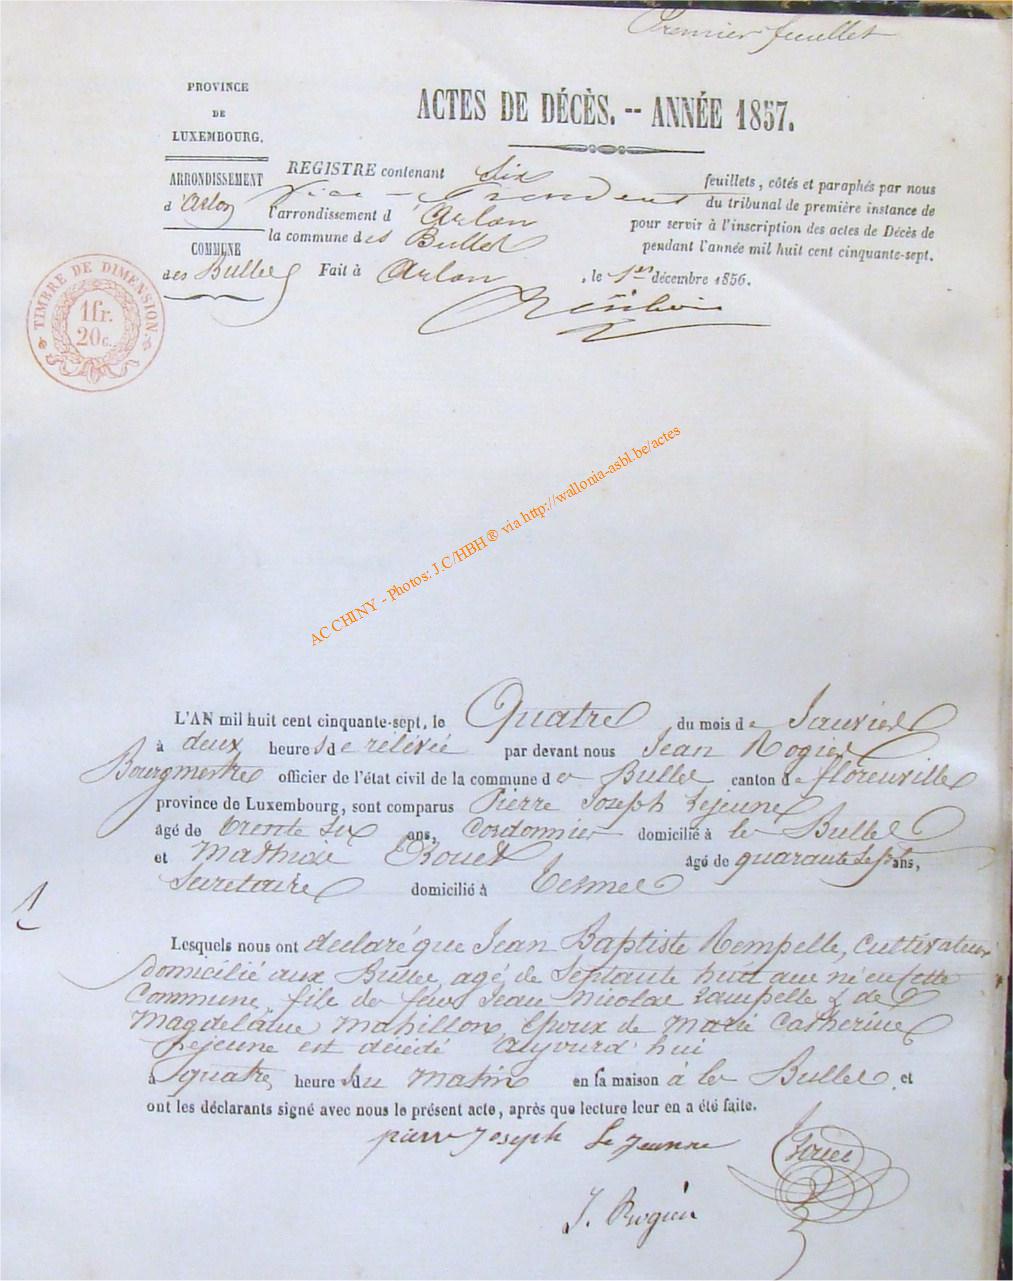 Premier feuillet
PROVINCE
DE
LUXEMBOURG.
ARRONDISSEMENT
d'Arlon
COMMUNE
des Bulles
ACTES DE DÉCÈS. -- ANNÉE 1857.
REGISTRE contenant Six feuillets, côtés et paraphés par nous
vice - Président du tribunal de première instance de
l'arrondissement d'Arlon pour servir à l'inscription des actes de Décès de
la commune des Bulles pendant l'année mil huit cent cinquante-sept.
Fait à Arlon, le 1er décembre 1856.
TIMBRE DE DIMENSION
1fr.
20c.
AC CHINY - Photos: J.C/HBH® via http://wallonia-asbl.be/actes
L'AN mil huit cent cinquante-sept, le Quatre du mois de Janvier
à deux heures de rélévée par devant nous Jean Rogier
Bourgmestre officier de l'état civil de la commune de Bulles canton de florenville
province de Luxembourg, sont comparus Pierre Joseph Lejeune
âgé de trente six ans, Cordonnier domicilié à les Bulles
et Mathieu Rouer âgé de quarante sept ans,
Secretaire domicilié à Termes
1
Lesquels nous ont déclaré que Jean Baptiste Rempelle, cultivateur
domicilié aux Bulles, agé de Septante huit ans né en cette
Commune, fils de feus Jean Nicolas Rampelle & de
Magdelaine Mahillon, Epoux de Marie Catherine
Lejeune est décédé aujourd'hui
à quatre heures du matin en sa maison à les Bulles, et
ont les déclarants signé avec nous le présent acte, après que lecture leur en a été faite.
pierre Joseph Le Jeunne
Rouer
J. Rogier